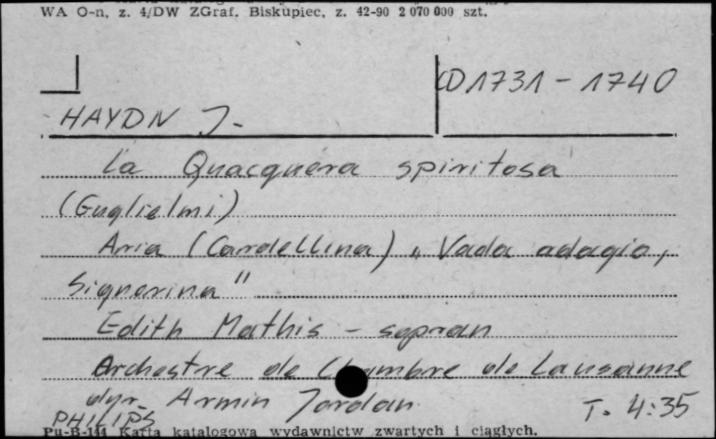 WA O-n, z. 4/DW ZGraf. Biskupiec, z. 42-90 2 070 000 szt.
CD 1731 - 1740
HAYDN J.
La Quacquera spiritosa
(Guglielmi)
Aria (Cardellina) „Vada adagio,
Signorina"
Edith Mathis - sopran
Orchestre de Chambre de Lausanne
dyr. Armin Jordan
T. 4:35
PHILIPS
Pu-B-144 Karta katalogowa wydawnictw zwartych i ciągłych.